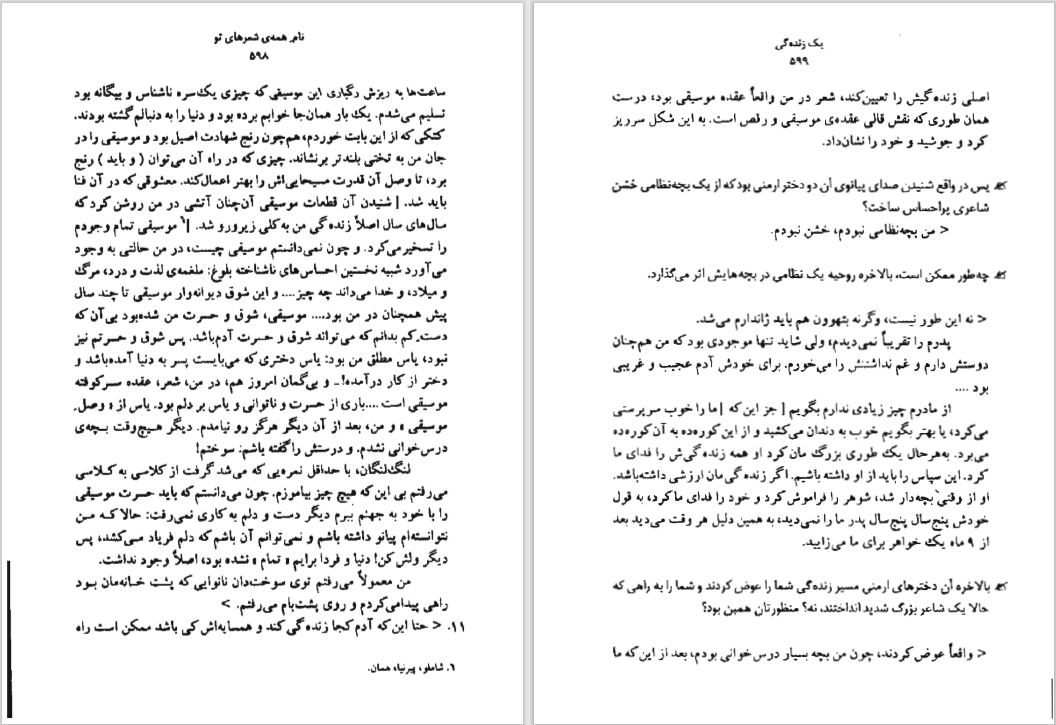 نام همه‌ی شعرهای تو
۵۹۸
ساعت‌ها به ریزش رگباری این موسیقی که چیزی یک‌سره ناشناس و بیگانه بود
تسلیم می‌شدم. یک بار همان‌جا خوابم برده بود و دنیا را به دنبالم گشته بودند.
کتکی که از این بابت خوردم، هم‌چون رنج شهادت اصیل بود و موسیقی را در
جان من به تختی بلندتر برنشاند. چیزی که در راه آن می‌توان ( و باید ) رنج
برد، تا وصل آن قدرت مسیحایی‌اش را بهتر اعمال‌کند. معشوقی که در آن فنا
باید شد. | شنیدن آن قطعات موسیقی آن‌چنان آتشی در من روشن کرد که
سال‌های سال اصلاً زنده‌گی من به‌کلی زیرورو شد. |⁶ موسیقی تمام وجودم
را تسخیر می‌کرد. و چون نمی‌دانستم موسیقی چیست، در من حالتی به وجود
می‌آورد شبیه نخستین احساس‌های ناشناخته بلوغ: ملغمه‌ی لذت و درد، مرگ
و میلاد، و خدا می‌داند چه چیز.... و این شوق دیوانه‌وار موسیقی تا چند سال
پیش همچنان در من بود.... موسیقی، شوق و حسرت من شده‌بود بی‌آن که
دست‌ِکم بدانم‌که می‌تواند شوق و حسرت آدم‌باشد. پس شوق و حسرتم نیز
نبود، یاس مطلق من بود: یاس دختری که می‌بایست پسر به دنیا آمده‌باشد و
دختر از کار درآمده! ـ و بی‌گمان امروز هم، در من، شعر، عقده سـرکوفته
موسیقی است ....باری از حسرت و ناتوانی و یاس بر دلم بود. یاس از « وصل
موسیقی » و من، بعد از آن دیگر هرگز رو نیامدم. دیگر هیچ‌وقت بچه‌ی
درس‌خوانی نشدم. و درستش را گفته باشم: سوختم!
لنگ‌لنگان، با حداقل نمره‌یی که می‌شد گرفت از کلاسی به کـلاسی
می‌رفتم بی این که هیچ چیز بیاموزم. چون می‌دانستم که باید حسرت موسیقی
را با خود به جهنم ببرم دیگر دست و دلم به کاری نمی‌رفت: حالا کـه مـن
نتوانسته‌ام پیانو داشته باشم و نمی‌توانم آن باشم که دلم فریاد مـی‌کشد، پس
دیگر ولش کن! دنیا و فردا برایم « تمام » نشده بود، اصلاً وجود نداشت.
من معمولاً می‌رفتم توی سوخت‌دان نانوایی که پشت خـانه‌مان بـود
راهی پیدامی‌کردم و روی پشت‌بام می‌رفتم. >
۱۱. < حتا این که آدم کجا زنده‌گی کند و همسایه‌اش کی باشد ممکن است راه
۶. شاملو، پیرنیا، همان.
یک زنده‌گی
۵۹۹
اصلی زنده‌گیش را تعیین‌کند، شعر در من واقعاً عقده موسیقی بود، درست
همان طوری که نقش قالی عقده‌ی موسیقی و رقص است. به این شکل سرریز
کرد و جوشید و خود را نشان‌داد.
پس در واقع شنیدن صدای پیانوی آن دو دختر ارمنی بود که از یک بچه‌نظامی خشن
شاعری پراحساس ساخت؟
< من بچه‌نظامی نبودم، خشن نبودم.
چه‌طور ممکن است، بالاخره روحیه یک نظامی در بچه‌هایش اثر می‌گذارد.
< نه این طور نیست، وگرنه بتهوون هم باید ژاندارم می‌شد.
پدرم را تقریباً نمی‌دیدم، ولی شاید تنها موجودی بود که من هم‌چنان
دوستش دارم و غم نداشتنش را می‌خورم. برای خودش آدم عجیب و غریبی
بود ....
از مادرم چیز زیادی ندارم بگویم [ جز این که ] ما را خوب سرپرستی
می‌کرد، یا بهتر بگویم خوب به دندان می‌کشید و از این کوره‌ده به آن کوره‌ده
می‌برد. به‌هرحال یک طوری بزرگ مان کرد او همه زنده‌گی‌ش را فدای ما
کرد. این سپاس را باید از او داشته باشیم. اگر زنده‌گی‌مان ارزشی داشته‌باشد.
او از وقتی بچه‌دار شد، شوهر را فراموش کرد و خود را فدای ما کرد، به قول
خودش پنج‌سال پنج‌سال پدر ما را نمی‌دید، به همین دلیل هر وقت می‌دید بعد
از ۹ ماه یک خواهر برای ما می‌زایید.
بالاخره آن دخترهای ارمنی مسیر زنده‌گی شما را عوض کردند و شما را به راهی که
حالا یک شاعر بزرگ شدید انداختند، نه؟ منظورتان همین بود؟
< واقعاً عوض کردند، چون من بچه بسیار درس‌خوانی بودم، بعد از این که ما